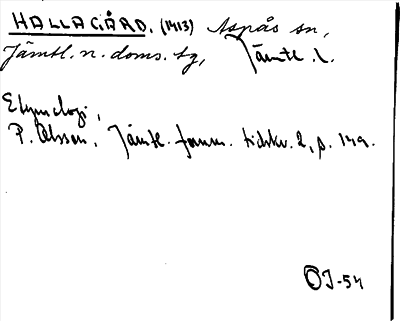 HALLAGÅRD. (1413) Aspås sn,
Jämtl. n. doms. tg, Jämtl. l.
Etymologi,
P. Olsson, Jämtl. fornm. tidskr. 2, s. 149.
OJ-54